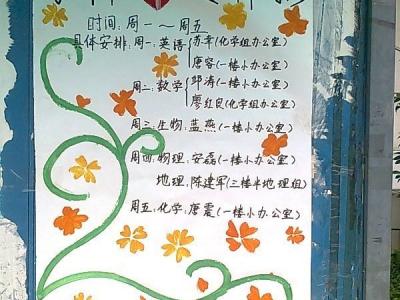 时间：周一～周五
具体安排：周一：英语 苏苹（化学组办公室）
唐容（一楼小办公室）
周二：数学 邹涛（一楼小办公室）
廖红良（化学组办公室）
周三：生物：蓝燕（一楼小办公室）
周四：物理：安磊（一楼小办公室）
地理：陈建军（三楼半地理组）
周五：化学：唐震（一楼小办公室）